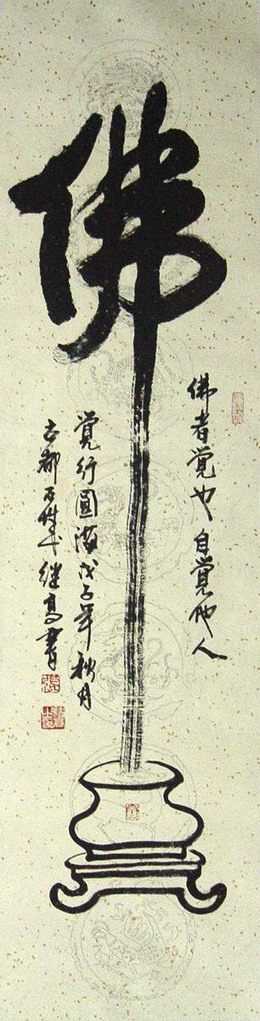 佛
佛者覺也自覺他人
覺行圓滿戊子年秋月
古都石竹继高書